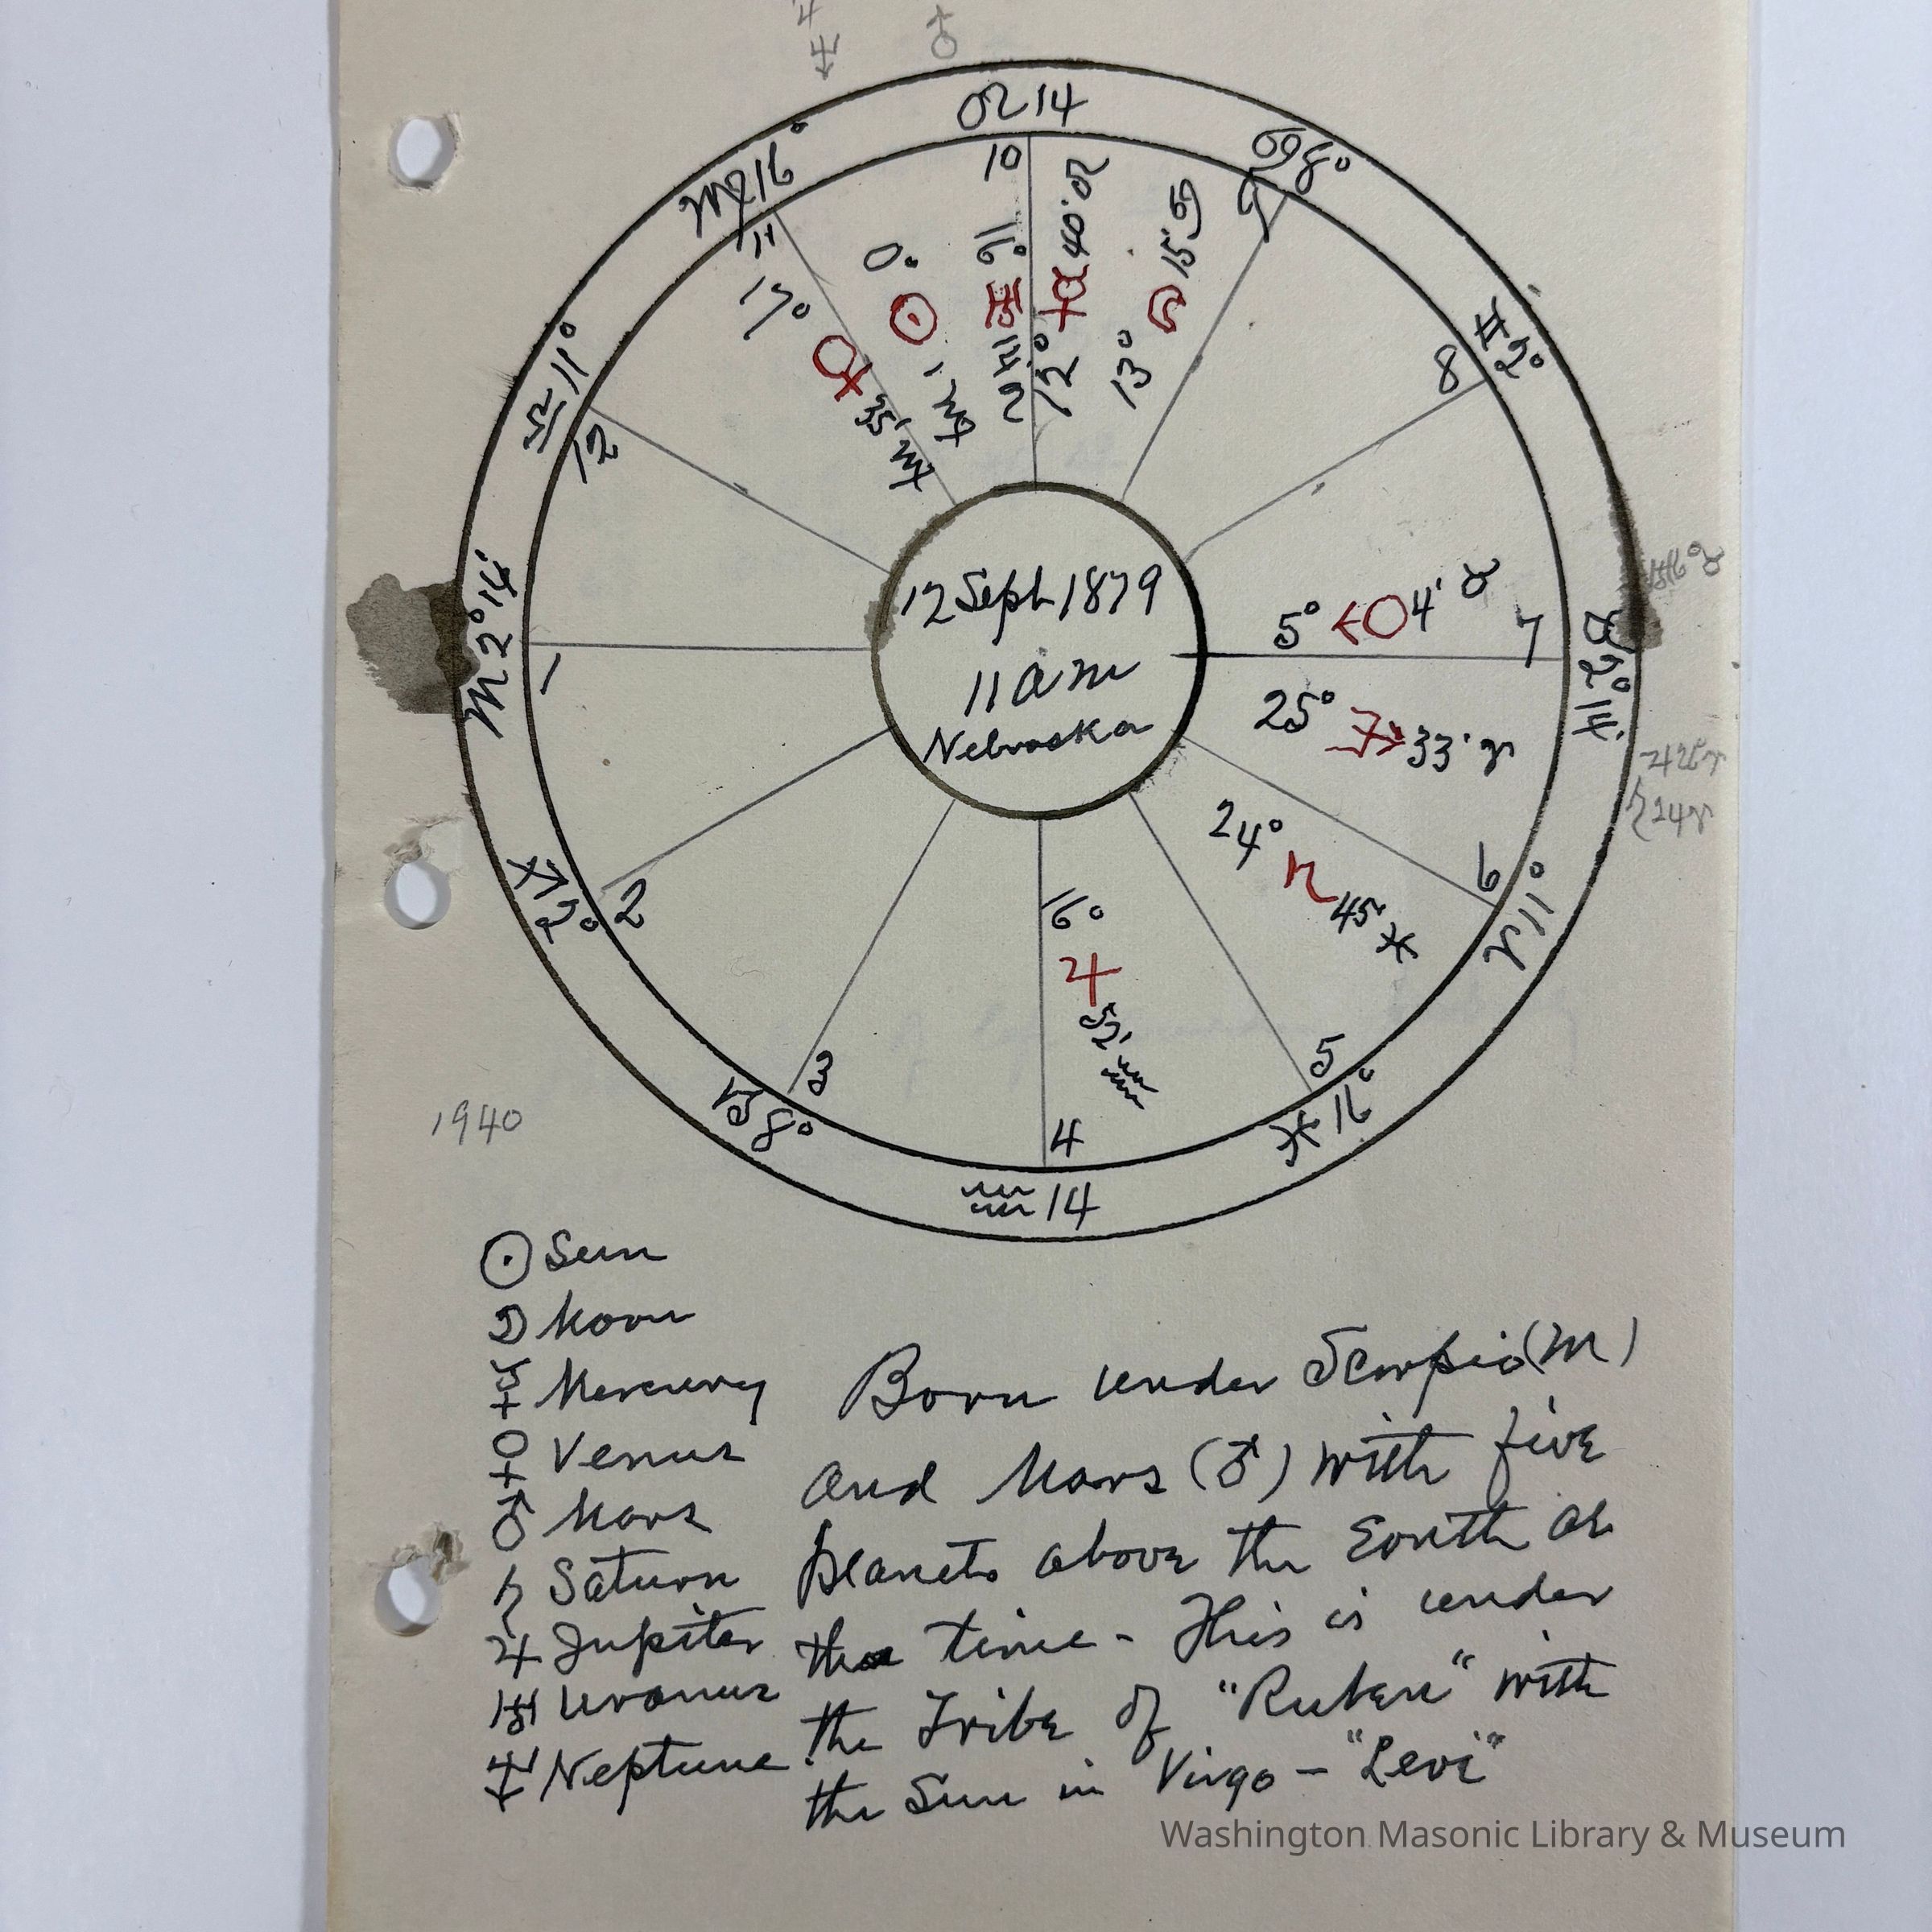 ♌14
10
♋8°
9
♍16°
11
♎11°
12
♏2°14'
1
♐2°
2
♑8°
3
♒14
4
♓16°
5
♈11°
6
♉2°14'
7
♊2°
8
17° ♀ 35' ♍
0° ☉ 1' ♍
12° ☿ 40' ♌
13° ☽ 15' ♋
5° ♂ 4' ♉
25° 33' ♈
24° 45' ♓
16° ♃ 52' ♒
12 Sept 1879
11 am
Nebraska
♅16°♉
1940
☉ Sun
☽ Moon
☿ Mercury
♀ Venus
♂ Mars
♄ Saturn
♃ Jupiter
♅ Uranus
♆ Neptune.
Born under Scorpio (♏)
and Mars (♂) with five
planets above the Earth at
the time - This is under
the Tribe of "Ruben" with
the Sun in Virgo - "Levi"
Washington Masonic Library & Museum